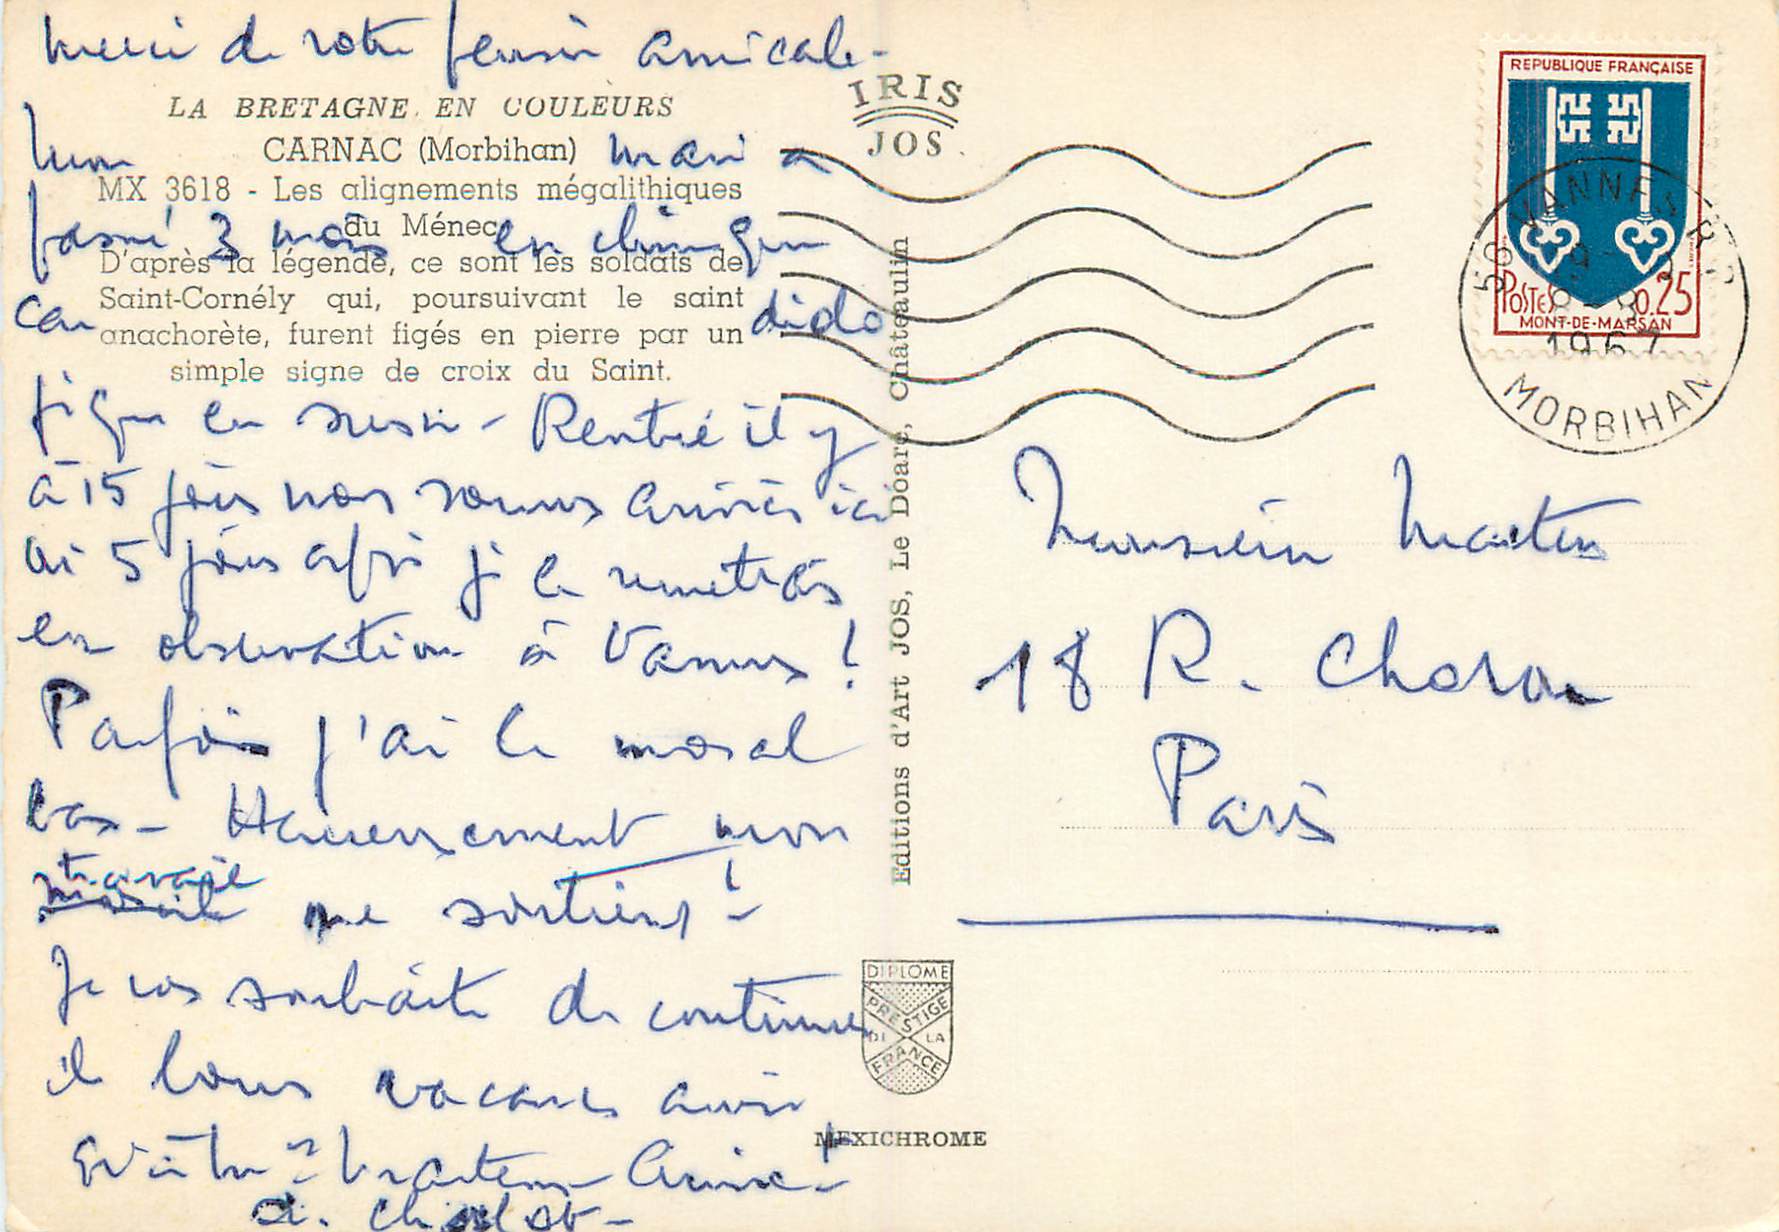 merci de votre pensée amicale -
LA BRETAGNE EN COULEURS
mon CARNAC (Morbihan) mari a
MX 3618 - Les alignements mégalithiques
du Ménec
passé 3 mois en chirurgie
D'après la légende, ce sont les soldats de
Saint-Cornély qui, poursuivant le saint
car dido
anachorète, furent figés en pierre par un
simple signe de croix du Saint.
en - Rentré il y
à 15 jours nous sommes arrivés ici
5 jours après je le remettais
en observation à Vannes !
Parfois j'ai le moral
bas - Heureusement mon
travail me soutient ! -
Je vous souhaite de continuer
bonnes vacances avec
Martens Amicat -
IRIS
JOS
Editions d'Art JOS, Le Doaré, Châteaulin
DIPLOME
PRESTIGE
DE LA
FRANCE
MEXICHROME
REPUBLIQUE FRANÇAISE
POSTES 0.25
MONT-DE-MARSAN
56 VANNES R.P.
1967
MORBIHAN
Monsieur Martens
18 R. Choron
Paris